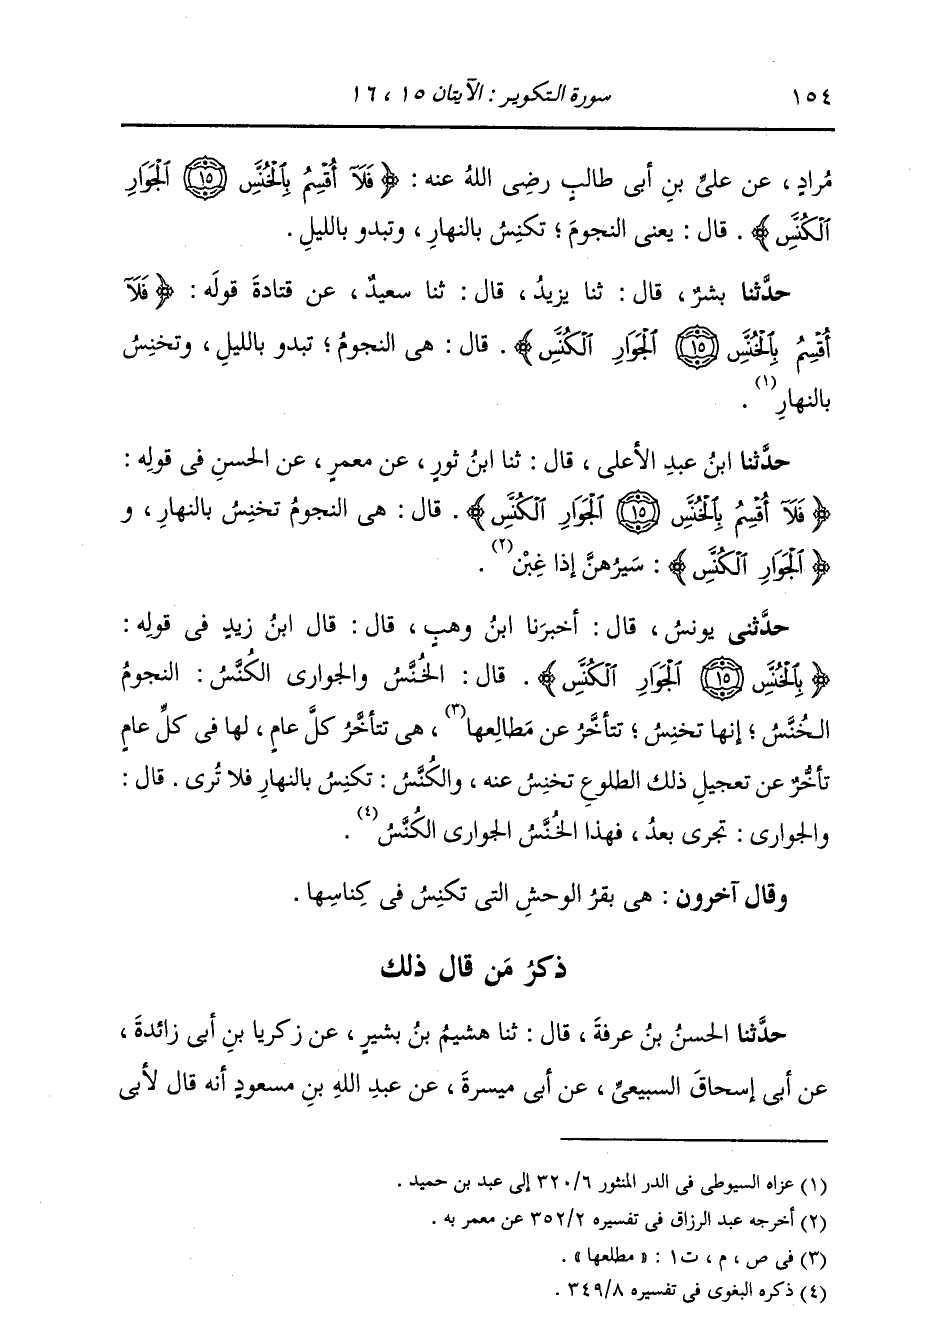 ١٥٤ سورة التكوير : الآيتان ١٥ ، ١٦
مُرادٍ ، عن علىِّ بنِ أبى طالبٍ رضِى اللهُ عنه : ﴿ فَلَآ أُقْسِمُ بِٱلْخُنَّسِ ۝١٥ ٱلْجَوَارِ
ٱلْكُنَّسِ ﴾ . قال : يعنى النجومَ ؛ تكنِسُ بالنهارِ ، وتبدو بالليلِ .
حدَّثنا بشرٌ ، قال : ثنا يزيدُ ، قال : ثنا سعيدٌ ، عن قتادةَ قولَه : ﴿ فَلَآ
أُقْسِمُ بِٱلْخُنَّسِ ۝١٥ ٱلْجَوَارِ ٱلْكُنَّسِ ﴾ . قال : هى النجومُ ؛ تبدو بالليلِ ، وتخنِسُ
بالنهارِ(١) .
حدَّثنا ابنُ عبدِ الأعلى ، قال : ثنا ابنُ ثورٍ ، عن معمرٍ ، عن الحسنِ فى قولِه :
﴿ فَلَآ أُقْسِمُ بِٱلْخُنَّسِ ۝١٥ ٱلْجَوَارِ ٱلْكُنَّسِ ﴾ . قال : هى النجومُ تخنِسُ بالنهارِ ، و
﴿ ٱلْجَوَارِ ٱلْكُنَّسِ ﴾ : سَيرُهنَّ إذا غِبْن(٢) .
حدَّثنى يونسُ ، قال : أخبرَنا ابنُ وهبٍ ، قال : قال ابنُ زيدٍ فى قولِه :
﴿ بِٱلْخُنَّسِ ۝١٥ ٱلْجَوَارِ ٱلْكُنَّسِ ﴾ . قال : الخُنَّسُ والجوارى الكُنَّسُ : النجومُ
الخُنَّسُ ؛ إنها تخنِسُ ؛ تتأخَّرُ عن مَطالِعها(٣) ، هى تتأخَّرُ كلَّ عامٍ ، لها فى كلِّ عامٍ
تأخُّرٌ عن تعجيلِ ذلك الطلوعِ تخنِسُ عنه ، والكُنَّسُ : تكنِسُ بالنهارِ فلا تُرى . قال :
والجوارى : تجرى بعدُ ، فهذا الخُنَّسُ الجوارى الكُنَّسُ(٤) .
وقال آخرون : هى بقرُ الوحشِ التى تكنِسُ فى كِناسِها .
ذكرُ مَن قال ذلك
حدَّثنا الحسنُ بنُ عرفةَ ، قال : ثنا هشيمُ بنُ بشيرٍ ، عن زكريا بنِ أبى زائدةَ ،
عن أبى إسحاقَ السبيعىِّ ، عن أبى ميسرةَ ، عن عبدِ اللهِ بنِ مسعودٍ أنه قال لأبى
(١) عزاه السيوطى فى الدر المنثور ٣٢٠/٦ إلى عبد بن حميد .
(٢) أخرجه عبد الرزاق فى تفسيره ٣٥٢/٢ عن معمر به .
(٣) فى ص ، م ، ت١ : « مطلعها » .
(٤) ذكره البغوى فى تفسيره ٣٤٩/٨ .